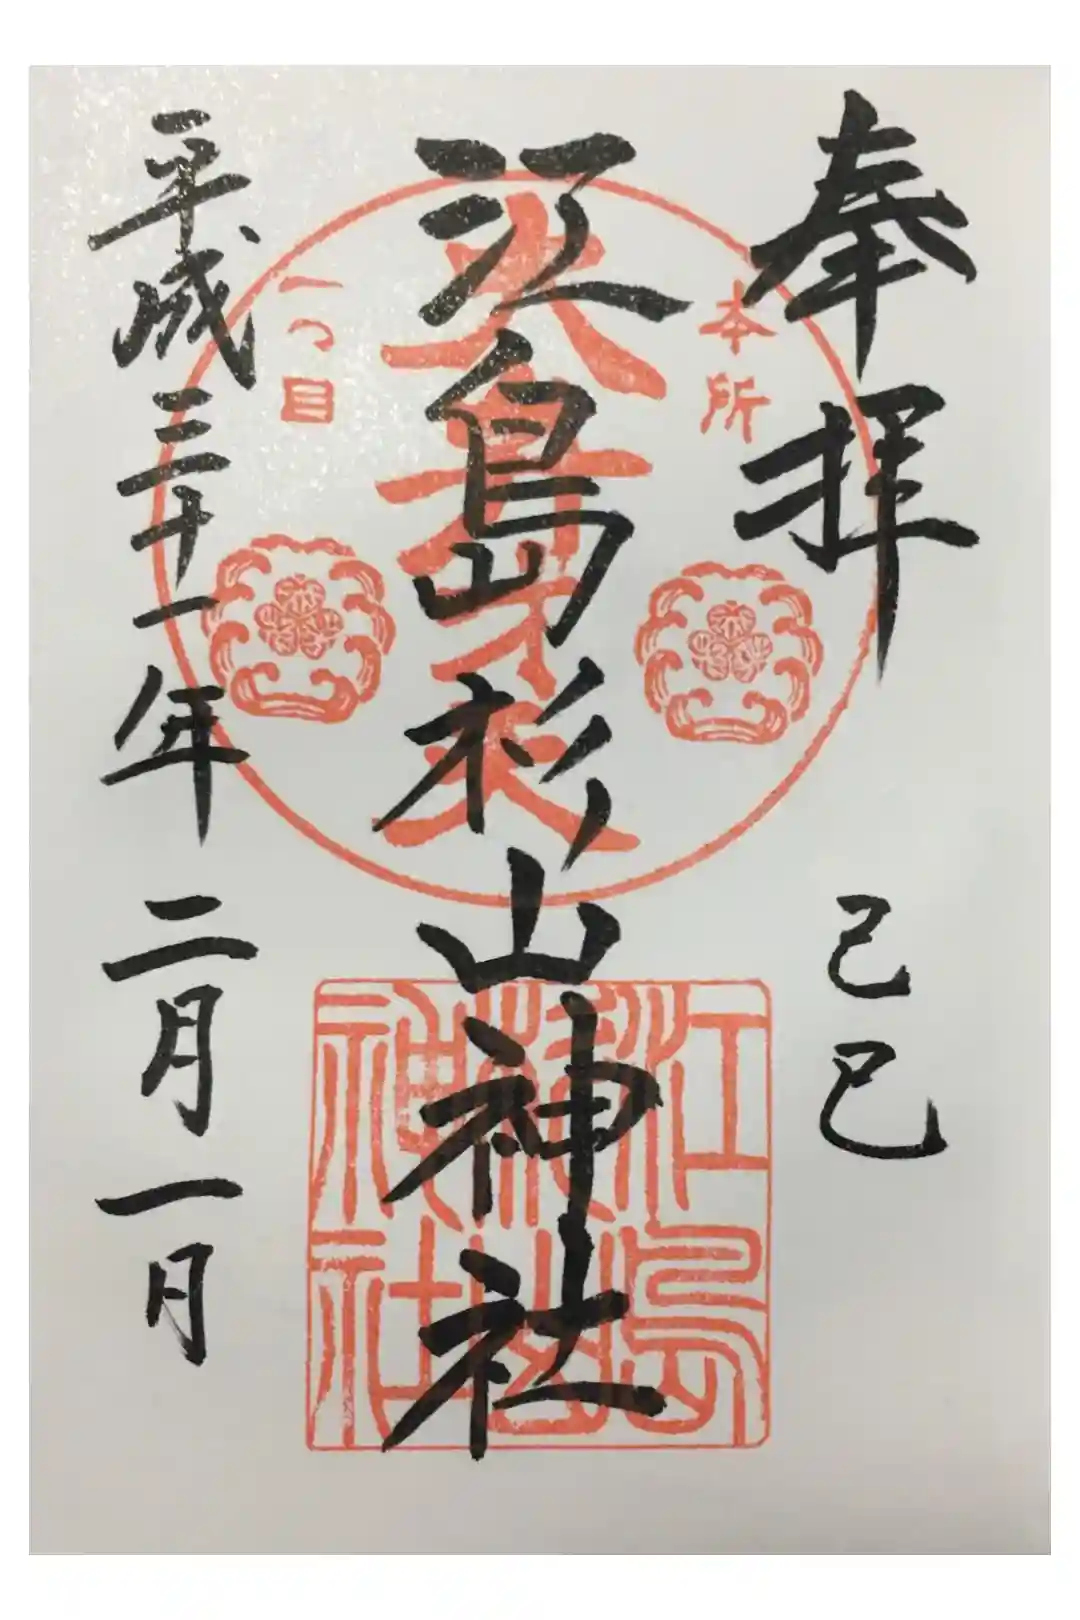 奉拝
己巳
本所
大弁才天
一つ目
江島杉山神社
江島
杉山
神社
平成三十一年二月一日